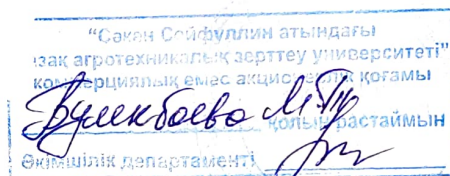 "Сәкен Сейфуллин атындағы
қазақ агротехникалық зерттеу университеті"
коммерциялық емес акционерлік қоғамы
қолын растаймын
Әкімшілік департаменті